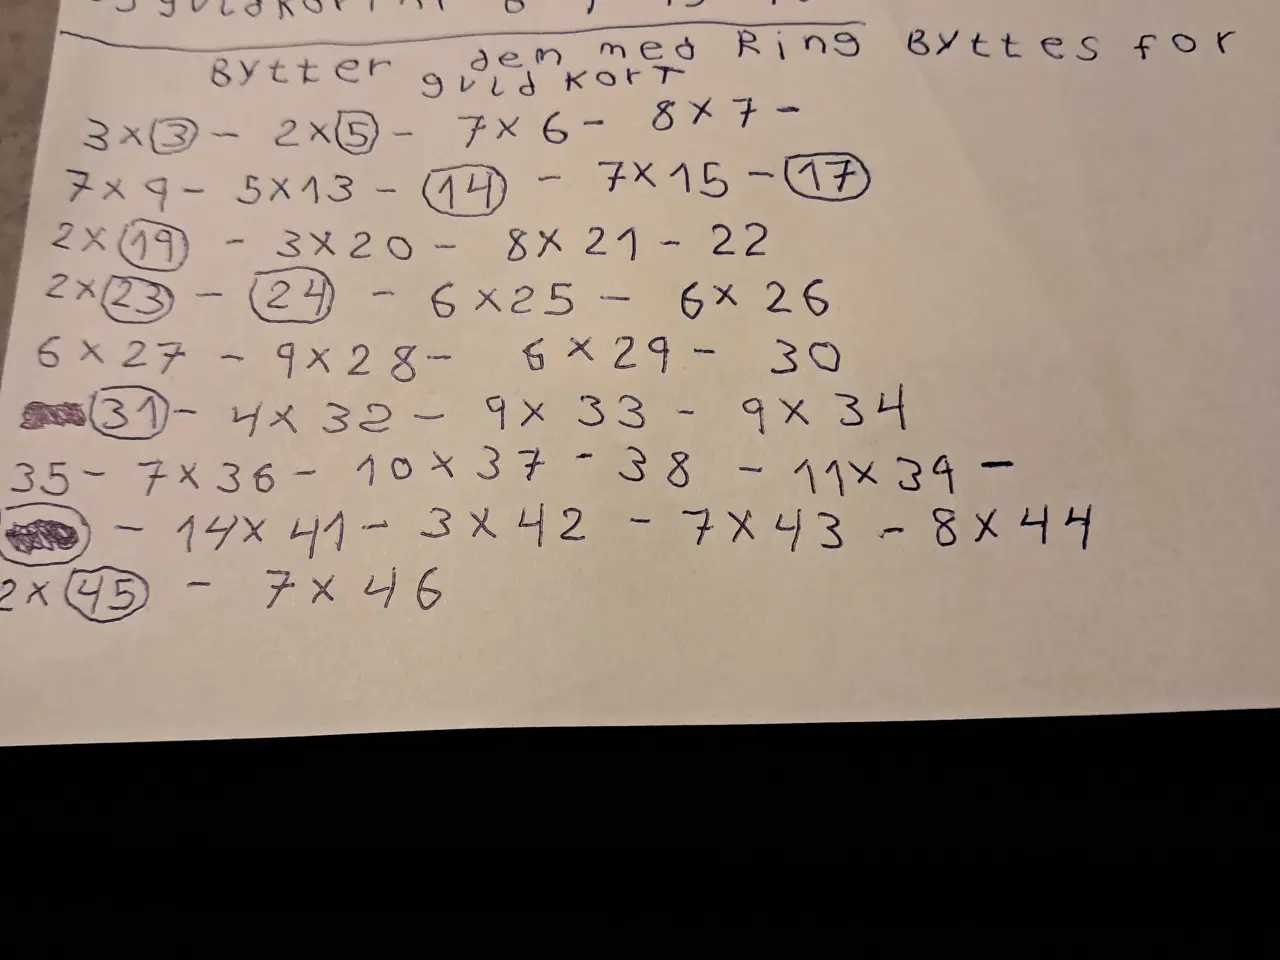 Bytter dem med Ring Byttes for
guldkort
3x3 - 2x5 - 7x6 - 8x7 -
7x9 - 5x13 - 14 - 7x15 - 17
2x19 - 3x20 - 8x21 - 22
2x23 - 24 - 6x25 - 6x26
6x27 - 9x28 - 6x29 - 30
31 - 4x32 - 9x33 - 9x34
35 - 7x36 - 10x37 - 38 - 11x39 -
- 14x41 - 3x42 - 7x43 - 8x44
2x45 - 7x46